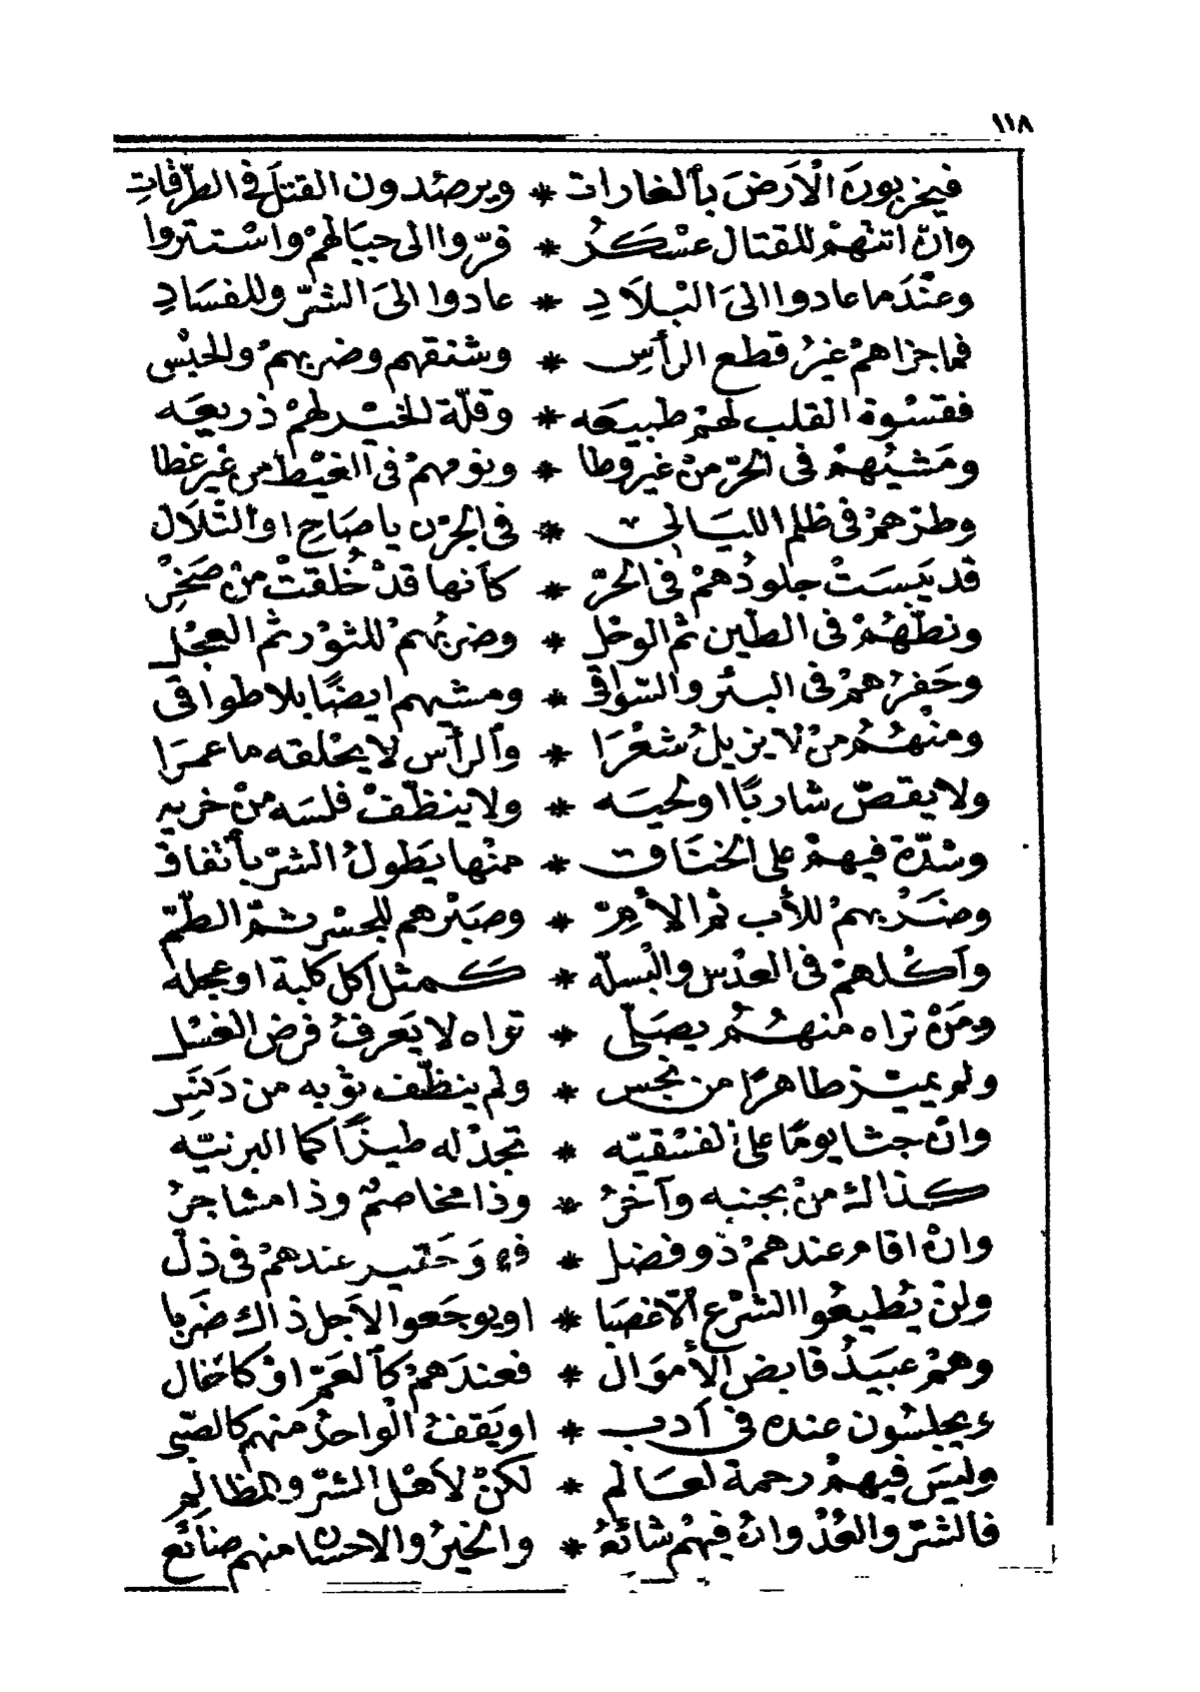 ١١٨
فيخربون الْأَرضَ بألغارات * ويرصُدون القتلَ في الطرقاتِ
وانْ اتتهُمْ للقتال عسْكرُ * فرّوا الى جبالهمْ واسْتتروا
وعنْدَما عادوا الىَ البْلَادِ * عادوا الىَ الشرّ وللفسَادِ
فما جزاهمْ غيرُ قطع الرأسِ * وشنقهم وضربهمْ والحبْس
فقسْوة القلب لهمْ طبيعه * وقلّة الخيْر لهمْ ذريعَه
ومَشيُهمْ في الحرّ منْ غير وطا * ونومهمْ في الغيْط من غير غطا
وطردهمْ في ظلم الليَالي * في الجرْن يا صَاحِ او التّلَال
قد يَبسَتْ جلودُهمْ في الحرّ * كأنها قدْ خُلقتْ منْ صَخْرِ
ونطّهُمْ في الطّين ثم الوحْل * وضربُهمْ للثوْر ثم العجْل
وحَفرُهمْ في البئر والسّواقي * ومشيهم ايضًا بلا طواقي
ومنْهُمُ منْ لا يزيلُ شعْرَا * وألرأس لا يحْلقه ما عمرَا
ولا يقصّ شاربًا او لحيَه * ولا ينظّفْ فلسَه منْ خريه
وشدّة فيهمْ على الخناق * منْها يَطولُ الشرّ بأتفاق
وضَرْبهمْ للأب ثم الأمّ * وصَبْرهم للجسْر ثمّ الطّمّ
وأكْلهمْ في العدْس والبْسلّه * كمثل أكل كلبة او عجله
ومَنْ تراه منهُمُ يصَلّي * تراه لا يَعرفُ فرض الغسْل
ولم يميّز طاهرًا من نجس * ولم ينظّف ثوْبه من دَنَسِ
وانْ جثا يومًا على الفسْقيّه * تجدْ له طيزًا كما البرنيّه
كذاك منْ بجنبه وآخرُ * وذا مخاصمٌ وذا مشاجرُ
وانْ اقام عندهمْ ذو فضل * فهو حَقير عندهمْ في ذلّ
ولنْ يُطيعُوا الشرْع ألّا غصْبَا * او يوجَعوا لأجل ذاك ضَربا
وهمْ عبيدُ قابض الأموَال * فعندَهمْ كألعَمّ اوْ كالخال
ويجلسُون عنده في أدب * او يَقفُ الْواحدُ منهم كالصّبي
وليسَ فيهمْ رحمة لعَالم * لكنْ لأهْل الشرّ والمظالم
فالشرّ والعُدْوانُ فيهمْ شائعُ * والخيرُ والاحسان منهم ضائع